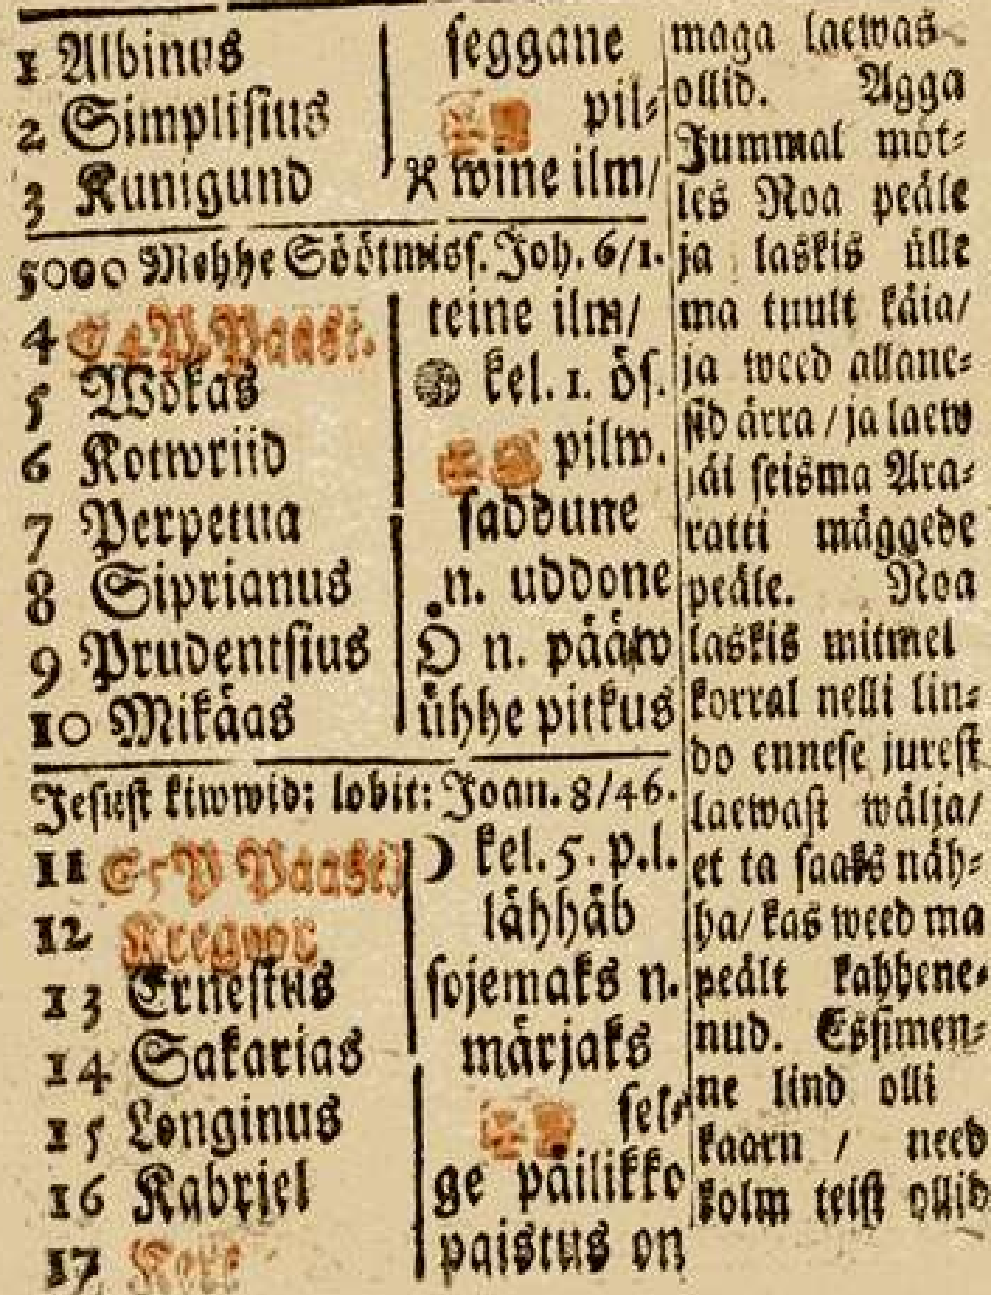 1 Albinus
2 Simplisius
3 Kunigund
seggane
pil⸗
wine ilm/
5000 Mehhe Söötmiss. Joh. 6/1.
4
5 Wökas
6 Kotwriid
7 Perpetua
8 Siprianus
9 Prudentsius
10 Mikäas
teine ilm/
kel. 1. öf.
pilw.
saddune
n. uddone
n. pääw
ühhe pitkus
Jesust kiwwid: lobit: Joan. 8/46.
11 E 5 P Paast.
12 Kregoor
13 Ernestus
14 Sakarias
15 Longinus
16 Kabriel
17
☽ kel. 5. p. l.
lähhäb
sojemaks n.
märjaks
sel⸗
ge päilikko
paistus on
maga laewas
ollid. Agga
Jummal möt⸗
les Noa peäle
ja laskis ülle
ma tuult käia/
ja weed allane⸗
sid ärra / ja laew
jäi seisma Ara⸗
ratti mäggede
peäle. Noa
laskis mitmel
korral nelli lin⸗
do ennese jurest
laewast wälja/
et ta saaks näh⸗
ha/ kas weed ma
peält kahhene⸗
nud. Essimen⸗
ne lind olli
kaarn / need
kolm teist ollid